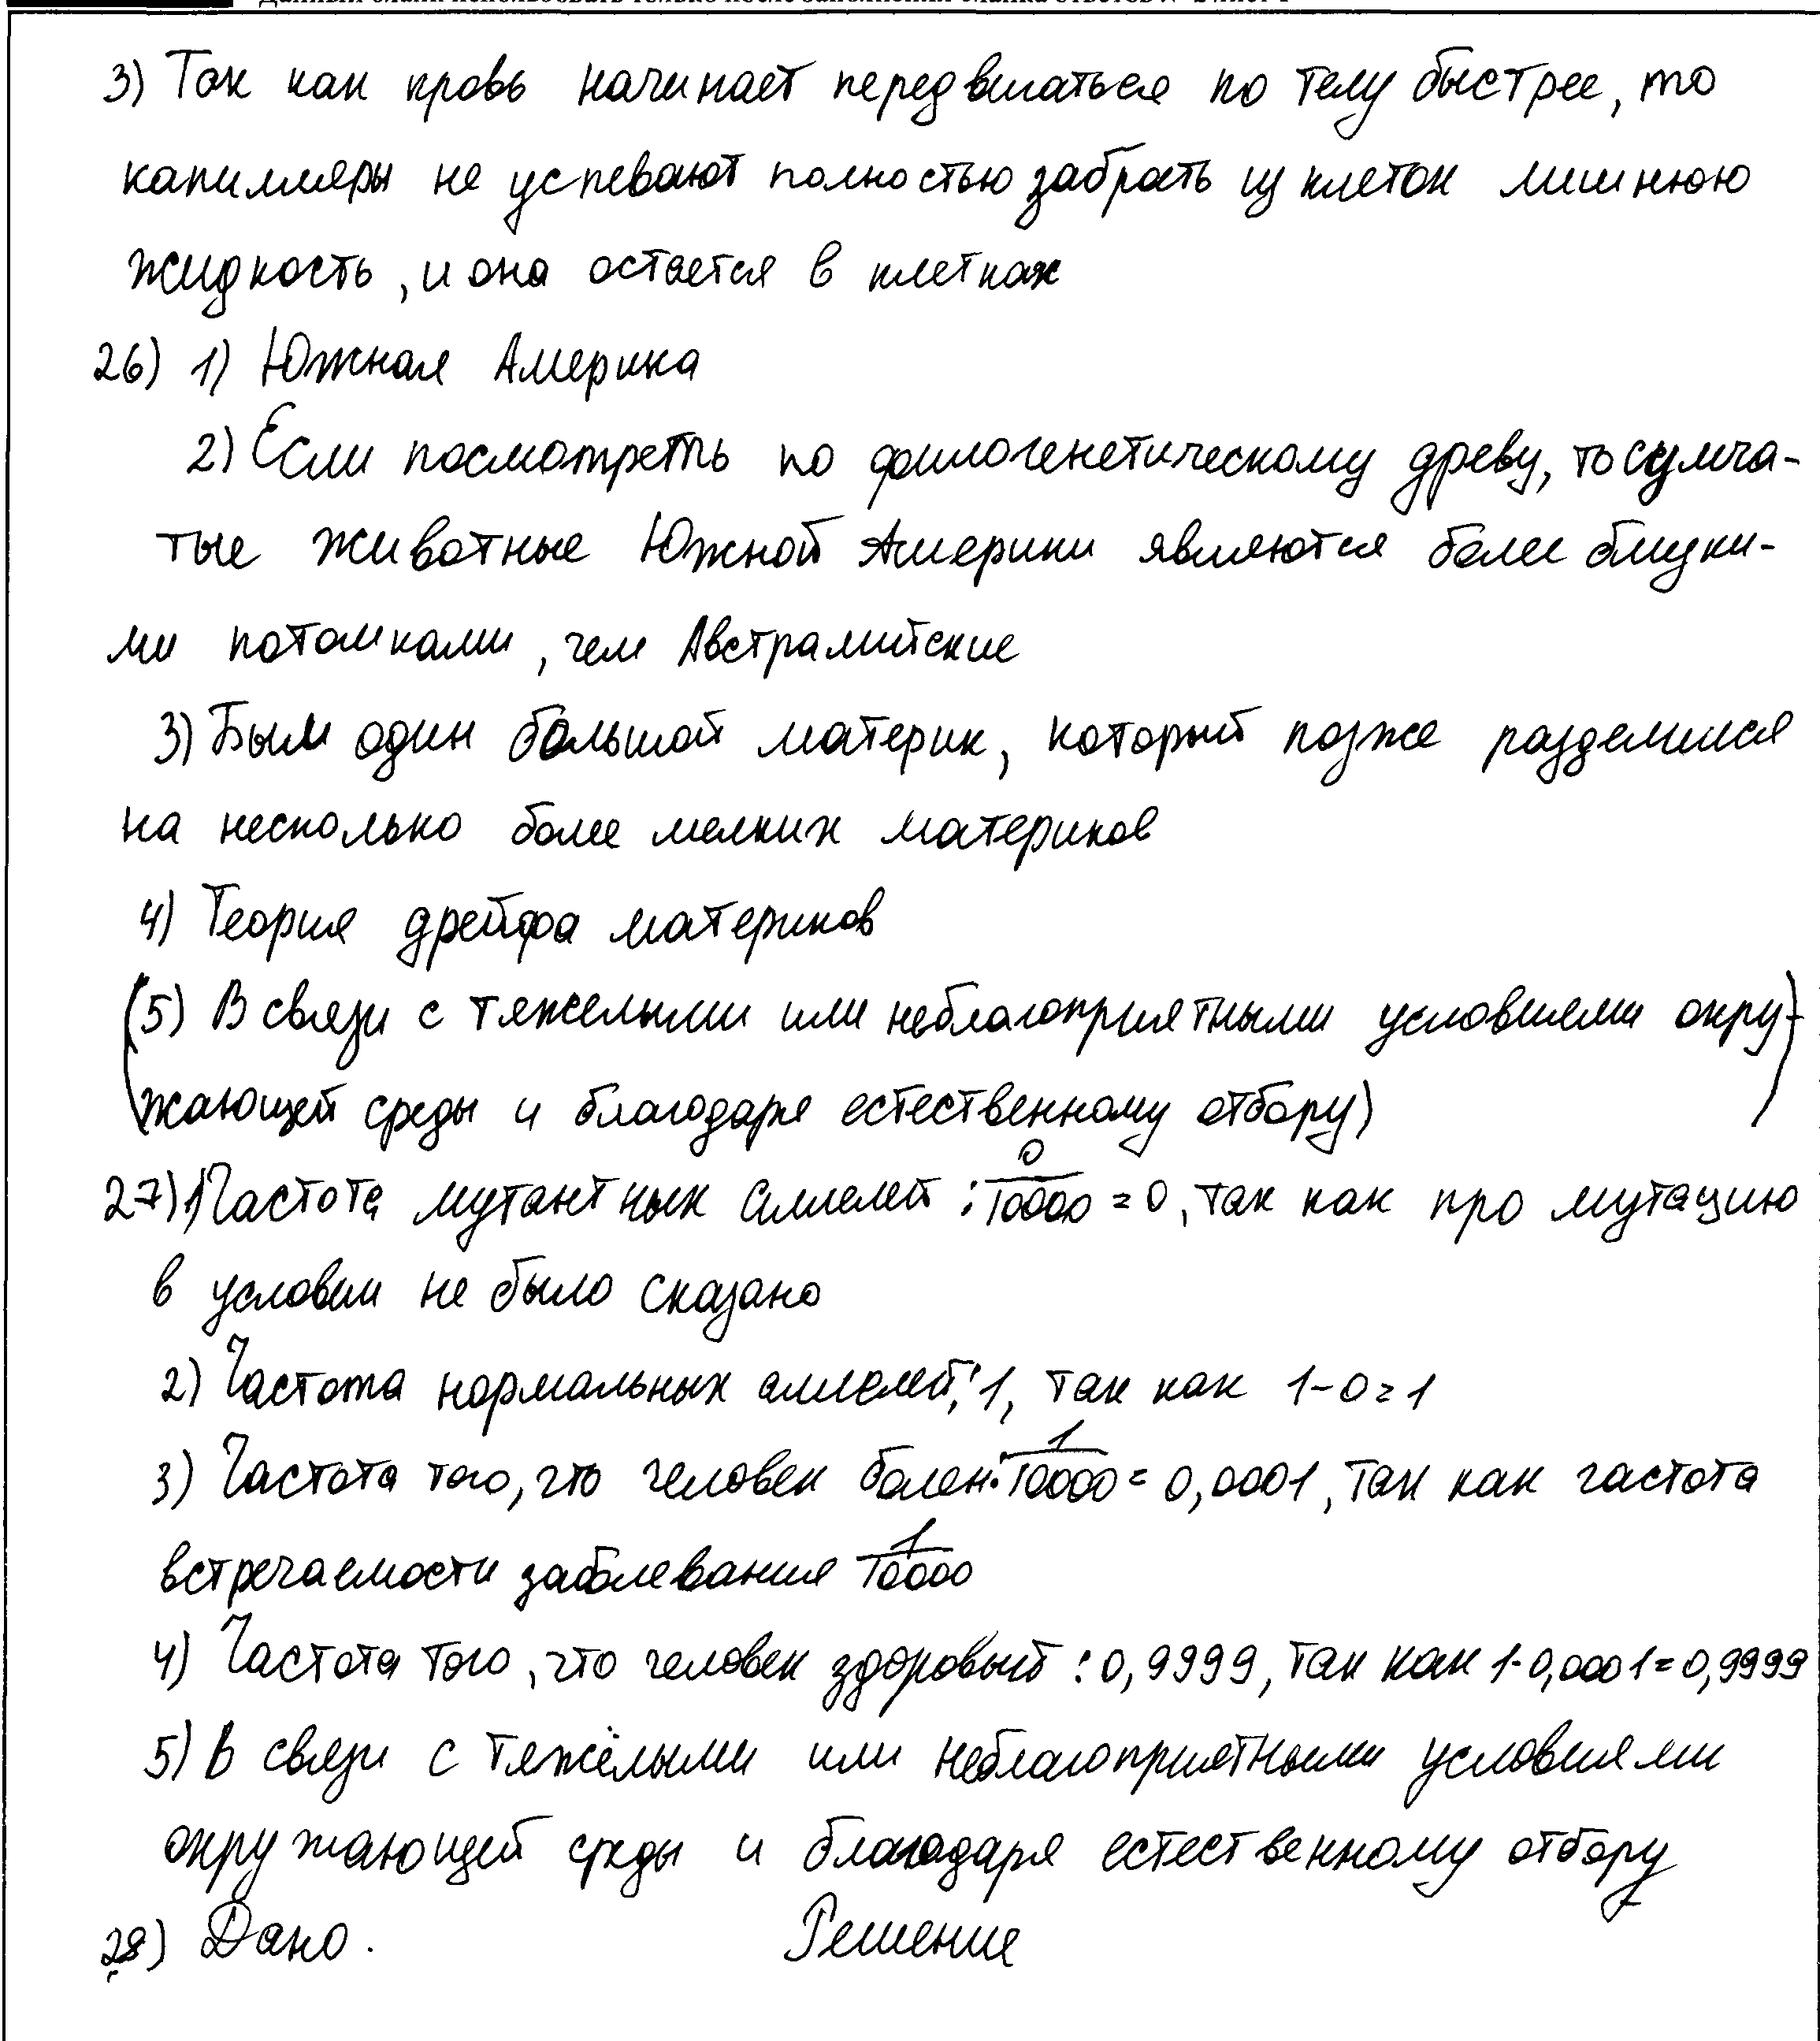 3) Так как кровь начинает передвигаться по телу быстрее, то
капилляры не успевают полностью забрать из клеток лишнюю
жидкость, и она остается в клетках
26) 1) Южная Америка
2) Если посмотреть по филогенетическому древу, то сумча-
тые животные Южной Америки являются более близки-
ми потомками, чем Австралийские
3) Был один большой материк, который позже разделился
на несколько более мелких материков
4) Теория дрейфа материков
(5) В связи с тяжелыми или неблагоприятными условиями окру-
жающей среды и благодаря естественному отбору)
27) 1) Частота мутантных аллелей: 0/10000 = 0, так как про мутацию
в условии не было сказано
2) Частота нормальных аллелей: 1, так как 1-0=1
3) Частота того, что человек болен: 1/10000 = 0,0001, так как частота
встречаемости заболевания 1/10000
4) Частота того, что человек здоровый: 0,9999, так как 1-0,0001=0,9999
5) В связи с тяжёлыми или неблагоприятными условиями
окружающей среды и благодаря естественному отбору
28) Дано. Решение